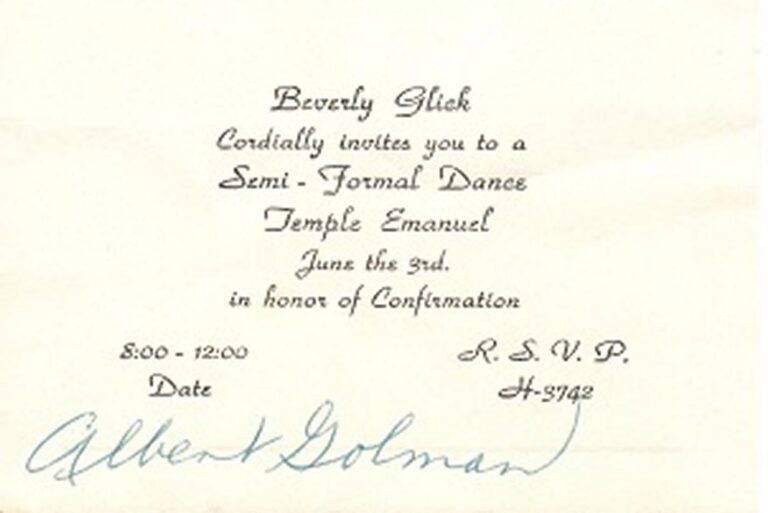 Beverly Glick
Cordially invites you to a
Semi - Formal Dance
Temple Emanuel
June the 3rd.
in honor of Confirmation
8:00 - 12:00
R. S. V. P.
Date
H-3742
Albert Golman